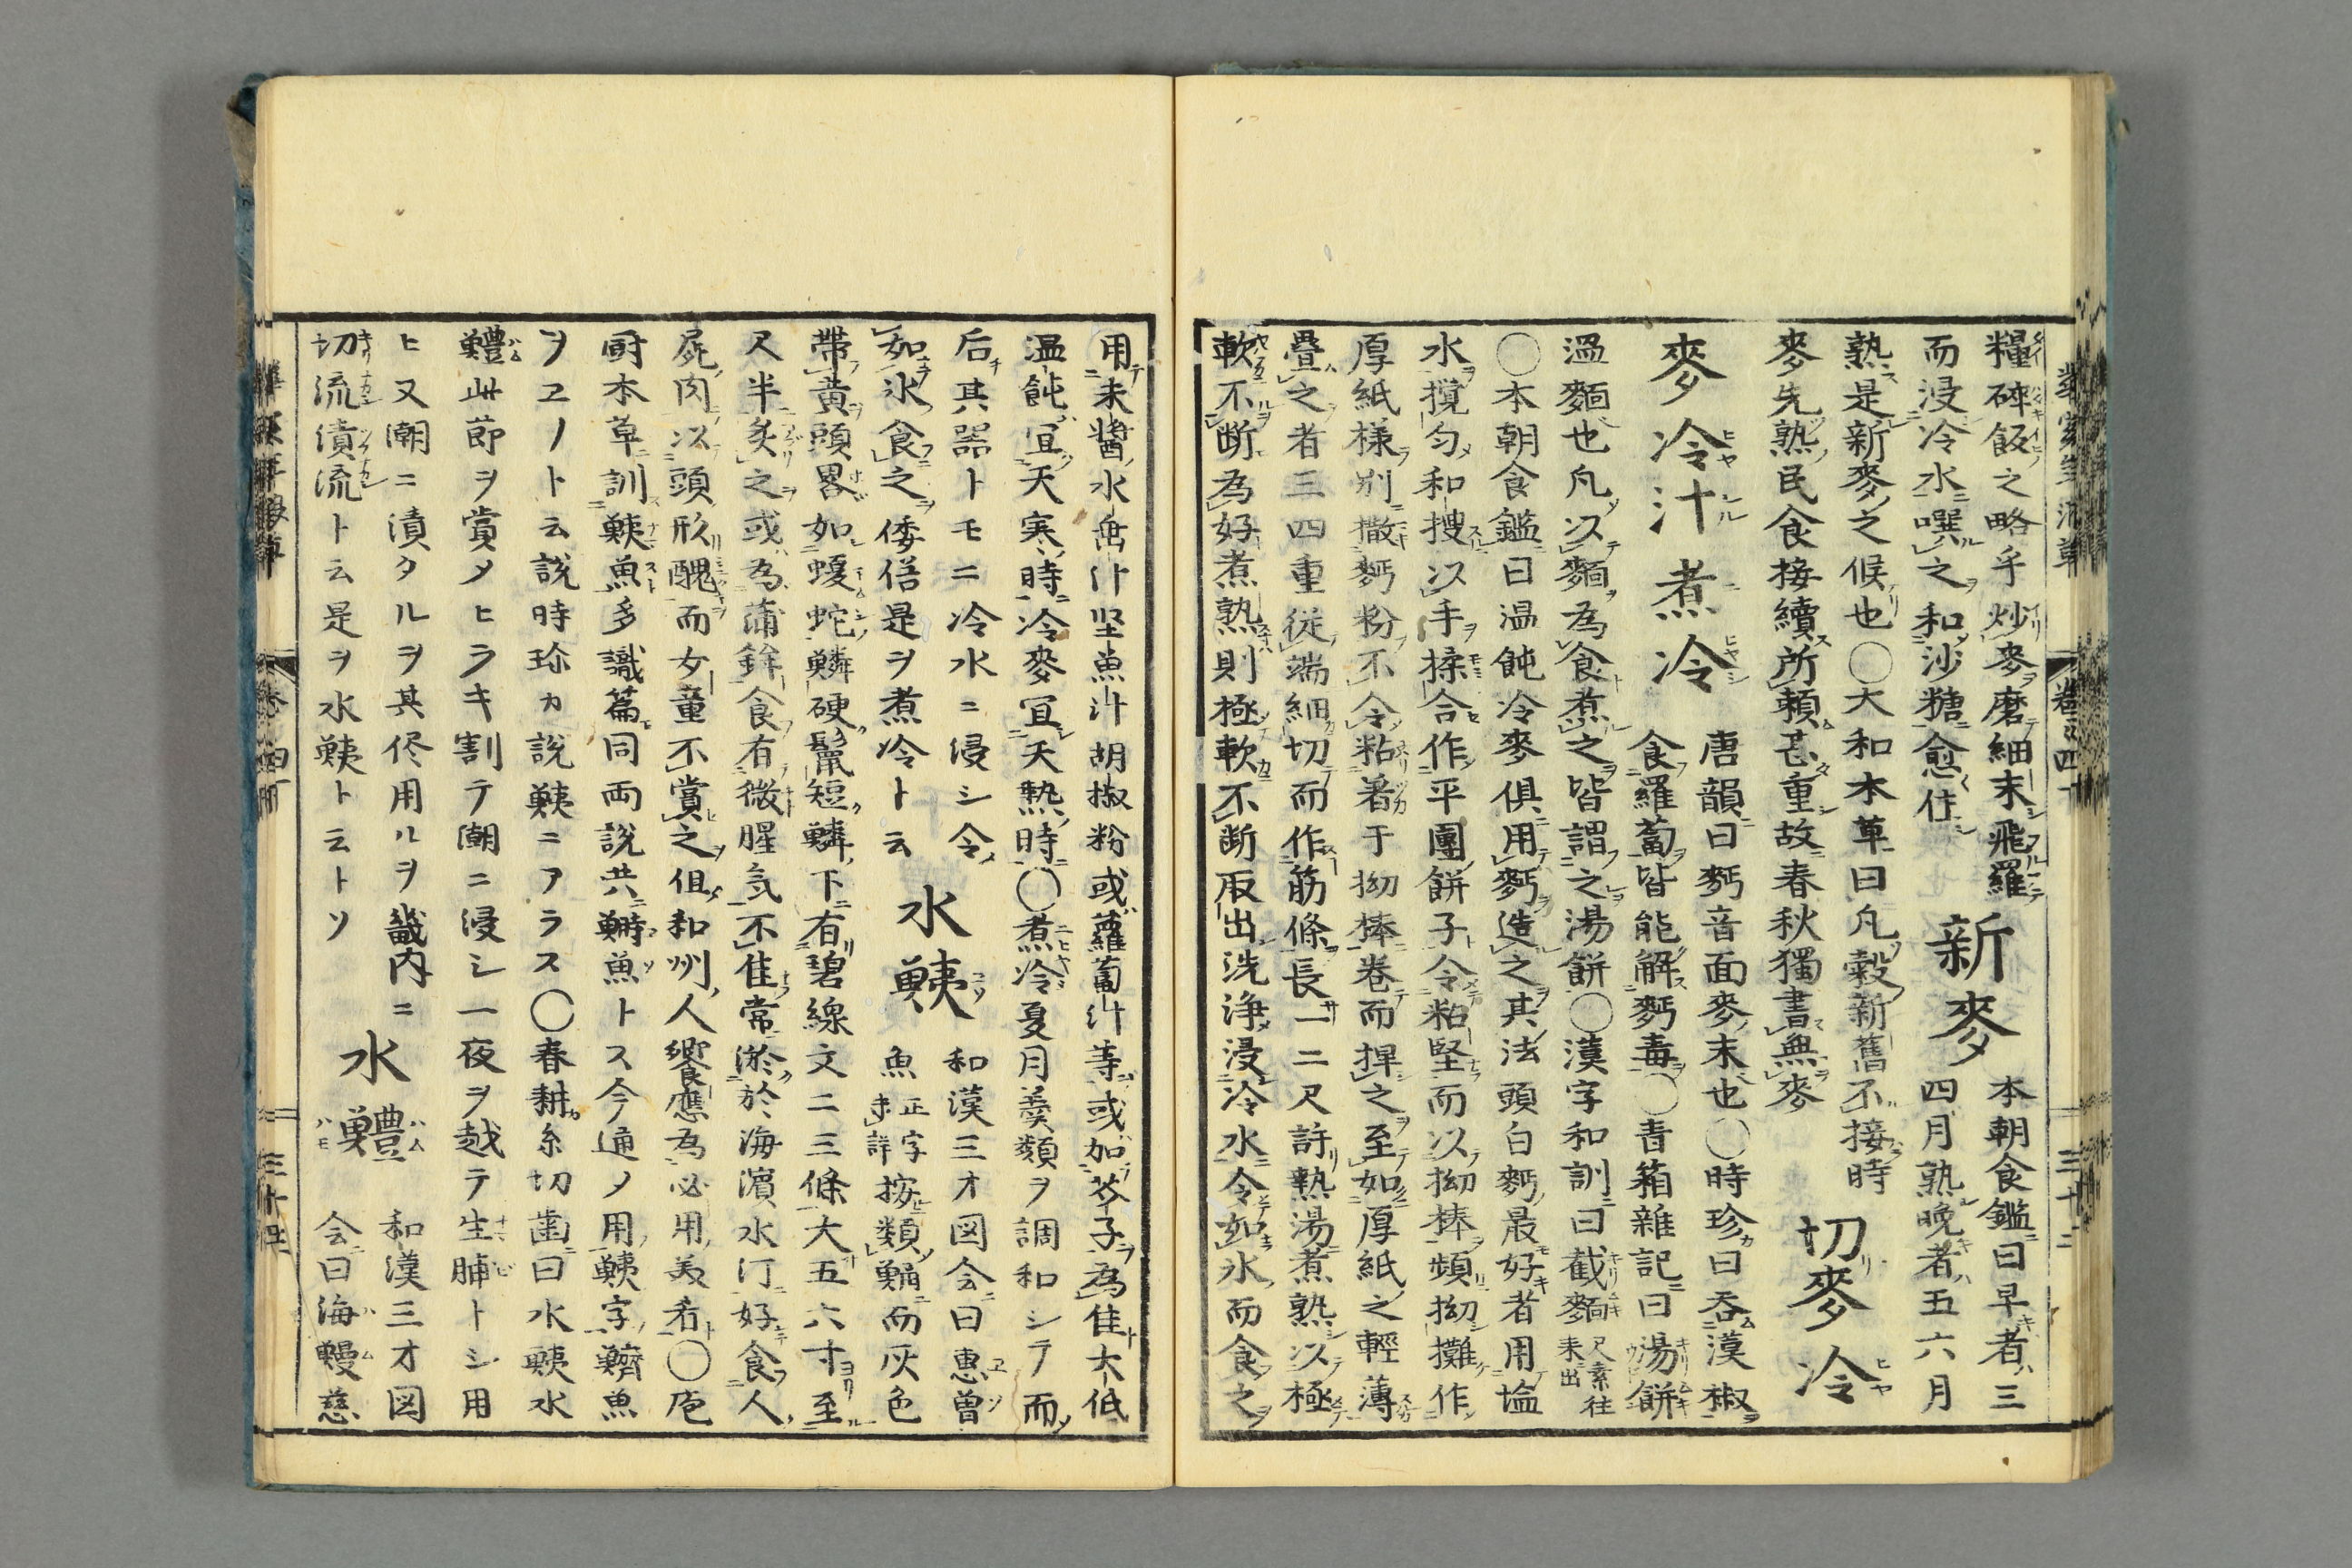 糧碎飯之略乎炒麥磨細末飛羅
而浸冷水噀之和沙糖愈佳
新麥
本朝食鑑曰早者三
四月熟晩者五六月
熟是新麥之候也〇大和本草曰凡穀新舊不接時
麥先熟民食接續所頼甚重故春秋獨書無麥
切麥冷
麥冷汁煮冷
唐韻曰麪音面麥末也〇時珍曰呑漢椒
食羅蔔皆能解麪毒〇青箱雜記曰湯餅
温麵也凡以麵為食煮之皆謂之湯餅〇漢字和訓曰截麵尺素往来出
〇本朝食鑑曰温飩冷麥倶用麪造之其法頭白麪最好者用塩
水攪匀和搜以手揉合作平團餅子令粘堅而以拗棒頻拗攤作
厚紙様別撒麪粉不令粘著于拗棒卷而捍之至如厚紙之輕薄
疊之者三四重従端細切而作筋條長一二尺許熱湯煮熟以極
軟不断為好煮熟則極軟不断取出洗浄浸冷水令如氷而食之
用未醤水垂汁堅魚汁胡椒粉或蘿蔔汁等或加芥子為佳大低
温飩宜天寒時冷麥宜天熱時〇煮冷夏月羹類ヲ調和シテ而
后其器トモニ冷水ニ浸シ令
如氷食之倭俗是ヲ煮冷ト云
水鮧
和漢三才図会曰恵曽
魚正字未詳按類鯒而灰色
帶黄頭畧如蝮蛇鱗硬鬣短鱗下有碧線文二三條大五六寸至
尺半炙之或為蒲鉾食有微腥気不佳常淤於海濵水汀好食人
屍肉以頭形醜而女童不賞之但和州人饗應為必用美肴〇庖
厨本草訓鮧魚多識篇同両説共鰣魚トス今通メ用鮧字鱭魚
ヲヱノト云説時珍カ説鮧ニアラス〇春耕糸切歯曰水鮧水
鱧此節ヲ賞メヒラキ割テ潮ニ浸シ一夜ヲ越テ生脯トシ用
ヒ又潮ニ漬タルヲ其侭用ルヲ畿内ニ
切流漬流ト云是ヲ水鮧ト云トソ
水鱧
和漢三才図
会曰海鰻慈